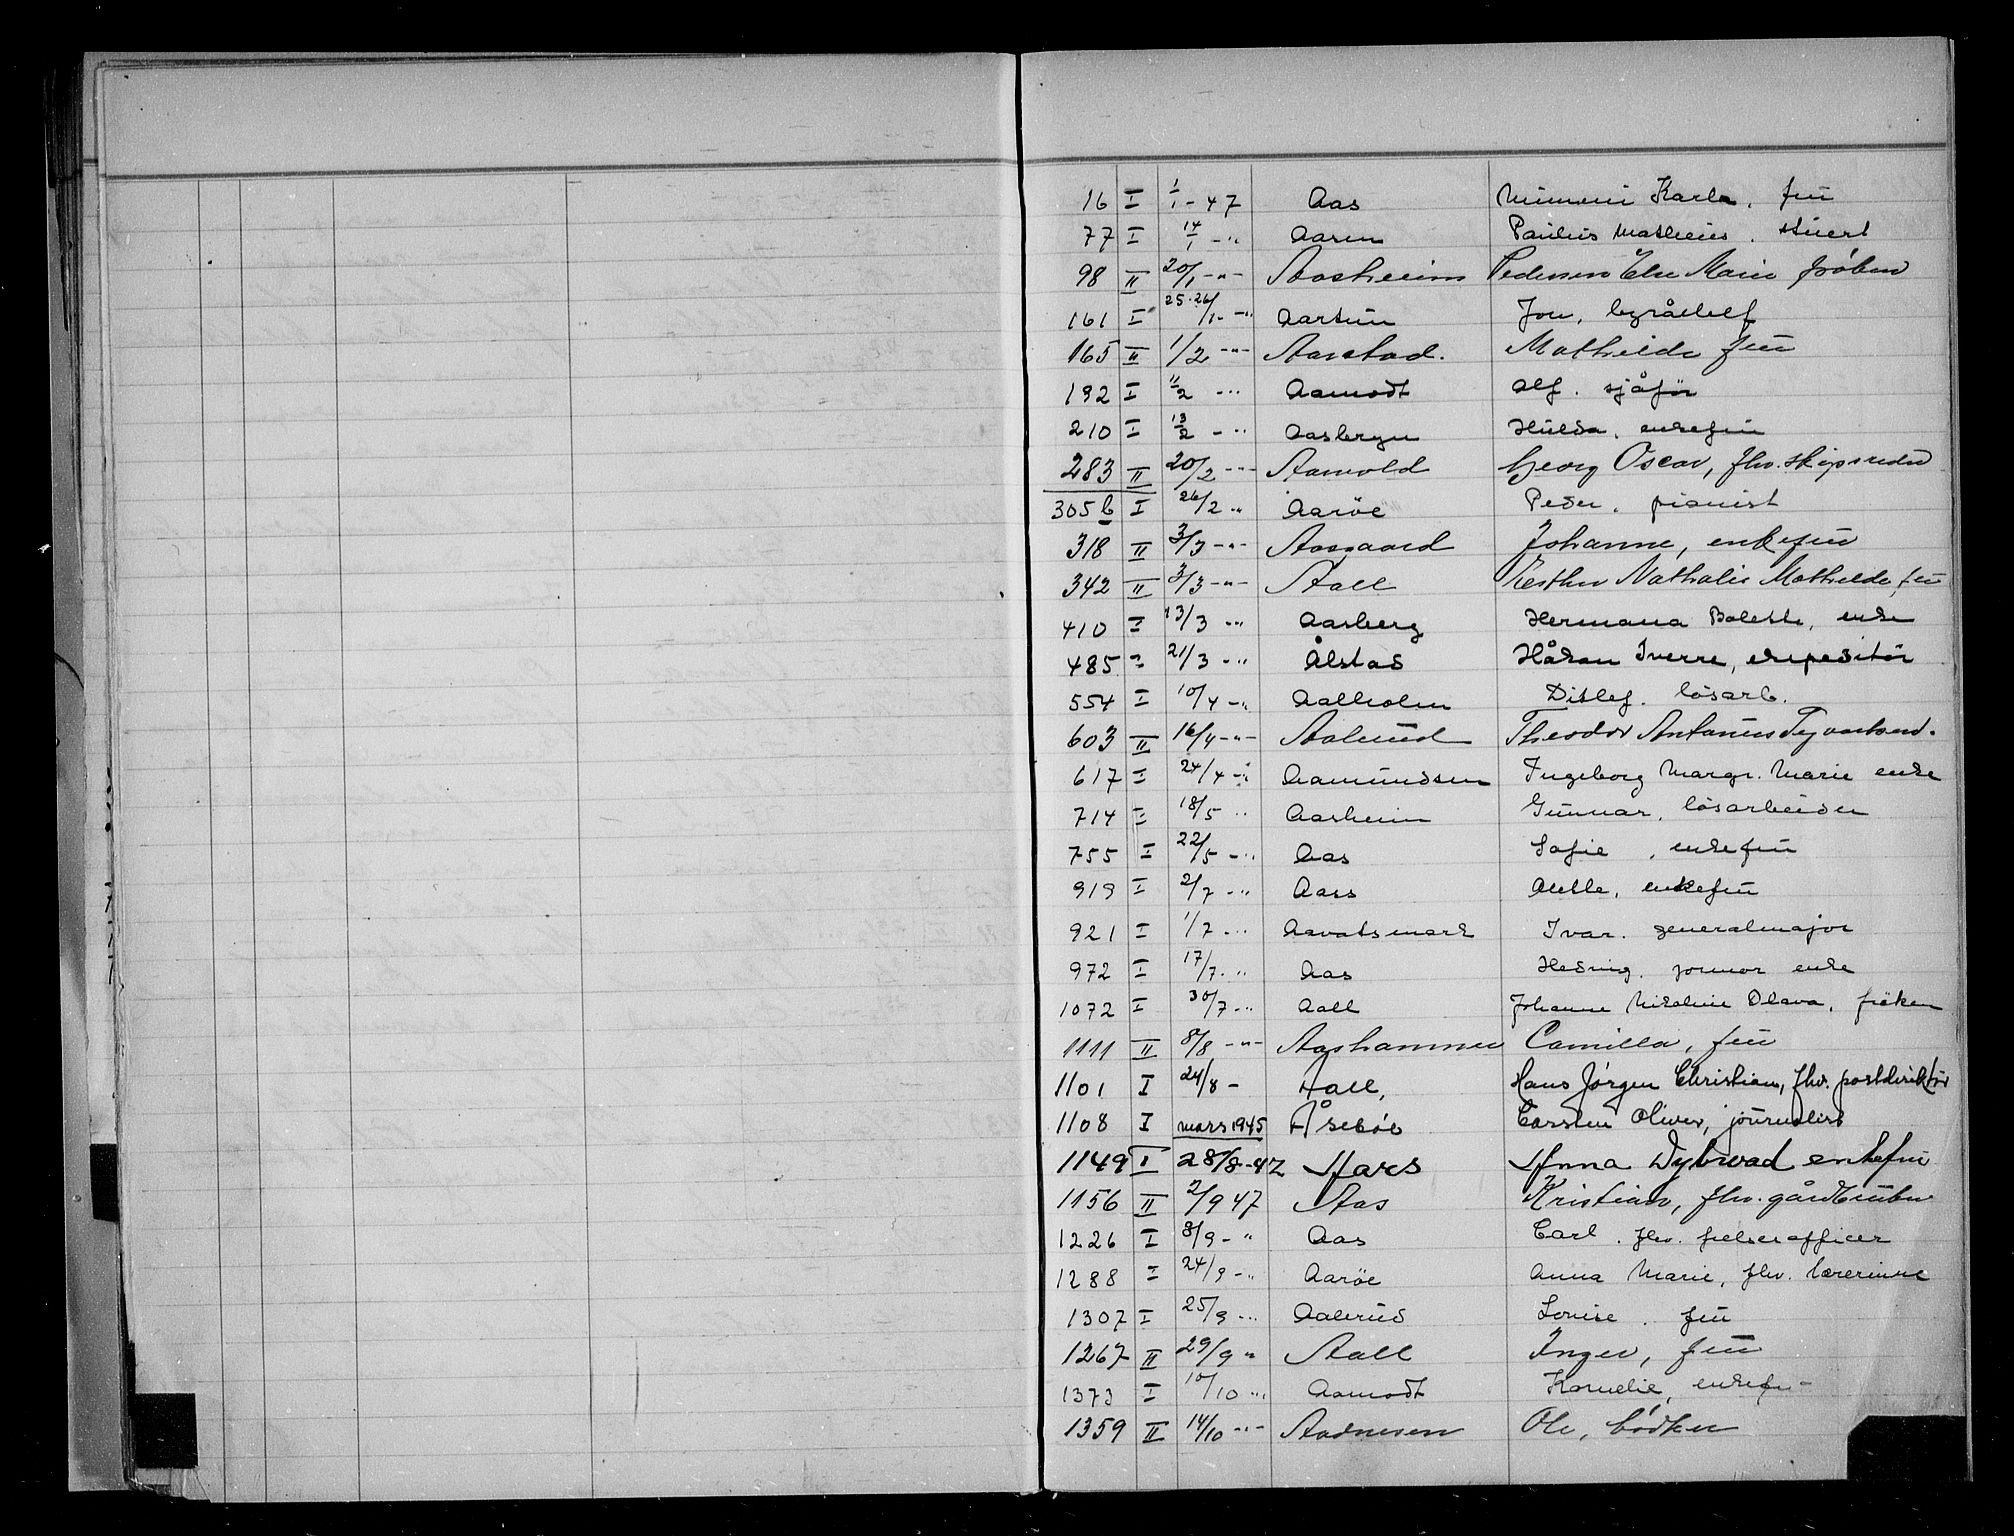 16 I 1/1 - 47 Aas Mimmi Karla, fru
77 I 14/1 - " Aasen Paulus Matheus. stuert
98 II 20/1 - " - Aasheim Pedersen Else Marie frøken
161 I 25-26/1 - " Aartun Jon, byråchef
165 II 1/2 - " - Aarstad. Mathilde fru
192 I 11/2 - " Aamodt Alf. sjåfør
210 I 13/2 - " Aasbergn Hulda, enkefru
283 II 20/2 - " - Aamold Georg Oscar, fhv. skipsreder
305 b I 26/2 " Aarøe Peder. pianist
318 II 3/3 - " - Aasgaard Johanne, enkefru
342 II 3/3 - " - Aall Esther Nathalie Mathilde, fru
410 I 13/3 - " Aasberg Hermana Bolette, enke
485 I 21/3 - " Ålstad Håkon Sverre, ekspeditør
554 I 10/4 - " Aalholm Ditlef. løsarb.
603 II 16/4 - " - Aalerud Theodor Antonius
617 I 24/4 - " Aamundsen Ingeborg Margr. Marie enke
714 I 18/5 " Aasheim Gunnar, løsarbeider
755 I 22/5 - " Aas Sofie, enkefru
919 I 2/7 - " Aass Alette, enkefru
921 I 1/7 - " Aavatsmark Ivar. generalmajor
972 I 17/7 - " Aas Hedvig. jormor enke
1072 I 30/7 - " Aall Johanne Nikoline Olava, frøken
1111 II 8/8 - " - Aashammer Camilla, fru
1101 I 24/8 - Aall, Hans Jørgen Christian, fhv. postdirektør
1108 I mars 1945 Åsebøe Carsten Oliver, journalist
1149 I 28/8-47 Aars Anna Dybwad enkefru
1156 II 2/9 47 Aas Kristian, fhv. gårdbruker
1226 I 8/9 - " Aas Carl. fhv. frelserofficer
1288 I 24/9 - " Aarøe Anna Marie, fhv. lærerinne
1307 I 25/9 - " Aalerud Louise. fru
1267 II 29/9 " Aall Inger, fru
1373 I 10/10 " Aamodt Kornelie, enkefru
1359 II 14/10 - " - Aadnesen Ole, bødker